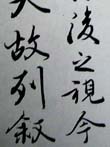 後之視今
故列叙